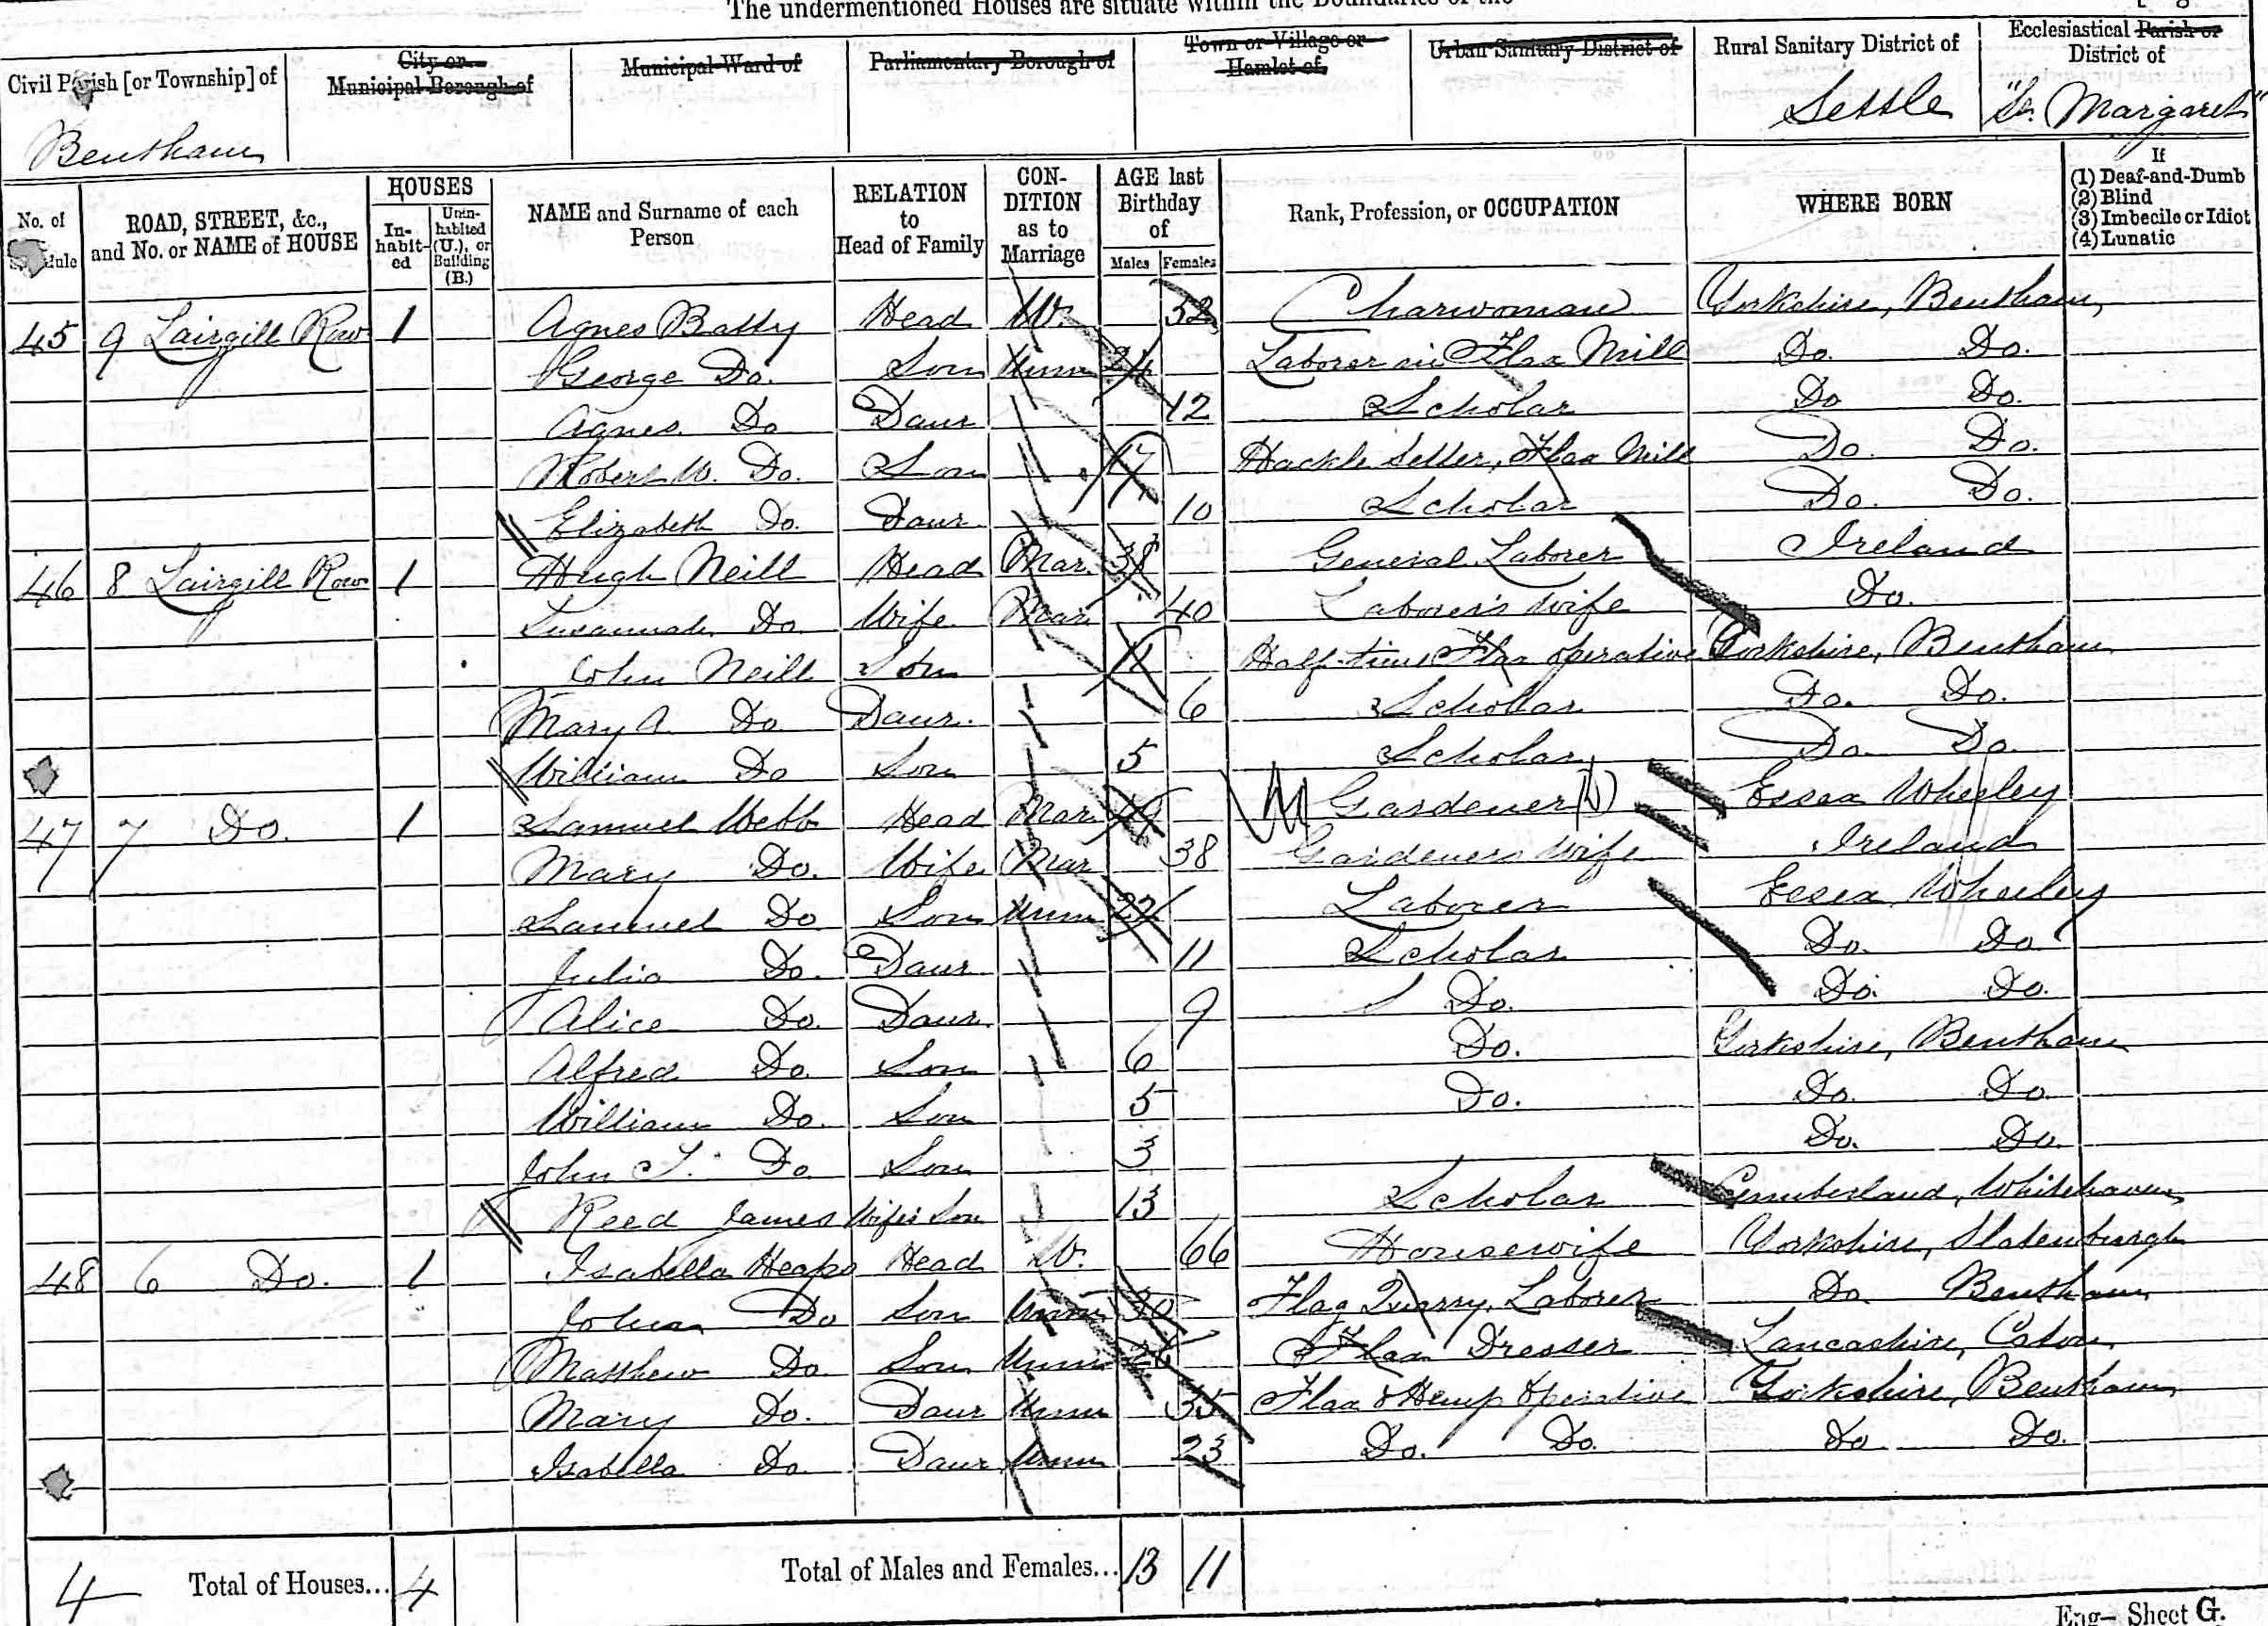 The undermentioned Houses are situate within the Boundaries of the
Civil Parish [or Township] of
Bentham
City or Municipal Borough of
Municipal Ward of
Parliamentary Borough of
Town or Village or Hamlet of
Urban Sanitary District of
Rural Sanitary District of
Settle
Ecclesiastical Parish or District of
"St. Margaret"
No. of
ROAD, STREET, &c., and No. or NAME of HOUSE
HOUSES
In-habit-ed
Unin-habited (U.), or Building (B.)
NAME and Surname of each Person
RELATION to Head of Family
CON-DITION as to Marriage
AGE last Birthday of
Males Females
Rank, Profession, or OCCUPATION
WHERE BORN
If
(1) Deaf-and-Dumb
(2) Blind
(3) Imbecile or Idiot
(4) Lunatic
45 9 Lairgill Row 1 Agnes Batty Head W. Charwoman Yorkshire, Bentham
George Do. Son Unm 24 Laborer in Flax Mill Do. Do.
Agnes Do Daur 12 Scholar Do Do.
Robert W. Do. Son 17 Hackle Setter, Flax Mill Do. Do.
Elizabeth Do. Daur 10 Scholar Do. Do.
46 8 Lairgill Row 1 Hugh Neill Head Mar. 38 General Laborer Ireland
Susannah Do. Wife Mar 40 Laborer's wife Do.
John Neill Son 11 Half-time Flax operative Yorkshire, Bentham
Mary A. Do Daur. 6 Scholar Do. Do.
William Do Son 5 Scholar Do. Do.
47 7 Do. 1 Samuel Webb Head Mar Gardener Essex Wheeley
Mary Do. Wife Mar 38 Gardeners wife Ireland
Samuel Do Son Unm 22 Laborer Essex Wheeley
Julia Do. Daur 11 Scholar Do. Do
Alice Do. Daur. 9 Do. Do. Do.
Alfred Do. Son 6 Do. Yorkshire, Bentham
William Do. Son 5 Do. Do. Do.
John S. Do. Son 3 Do. Do.
Reed James Wife's Son 13 Scholar Cumberland, Whitehaven
48 6 Do. 1 Isabella Heaps Head W. 66 Housewife Yorkshire, Slatenburgh
Do Son Unm 30 Flag Quarry Laborer Do Bentham
Matthew Do. Son Unm Flax Dresser Lancashire, Caton
Mary Do. Daur Unm 35 Flax & Hemp Operative Yorkshire, Bentham
Isabella Do. Daur Unm 23 Do. Do. Do Do.
4 Total of Houses... 4 Total of Males and Females... 13 11
Eng- Sheet G.